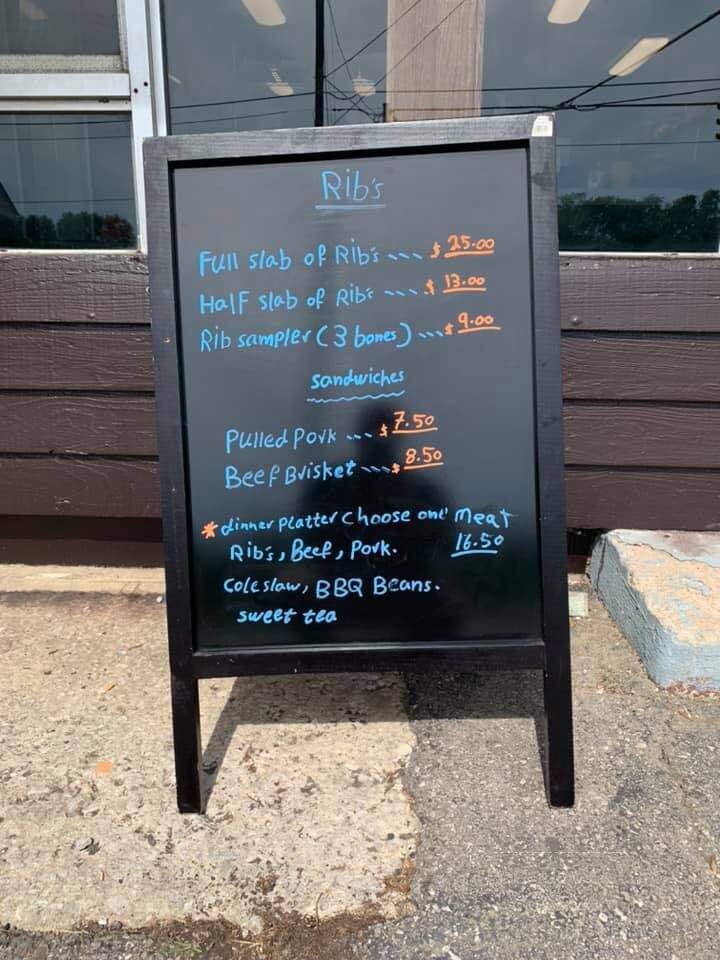 Rib's
Full slab of Rib's ---- $ 25.00
Half slab of Rib's ---- $ 13.00
Rib sampler (3 bones) ---- $ 9.00
Sandwiches
Pulled Pork ---- $ 7.50
Beef Brisket ---- $ 8.50
* dinner Platter Choose one' Meat
Rib's, Beef, Pork. 16.50
Coleslaw, BBQ Beans.
sweet tea